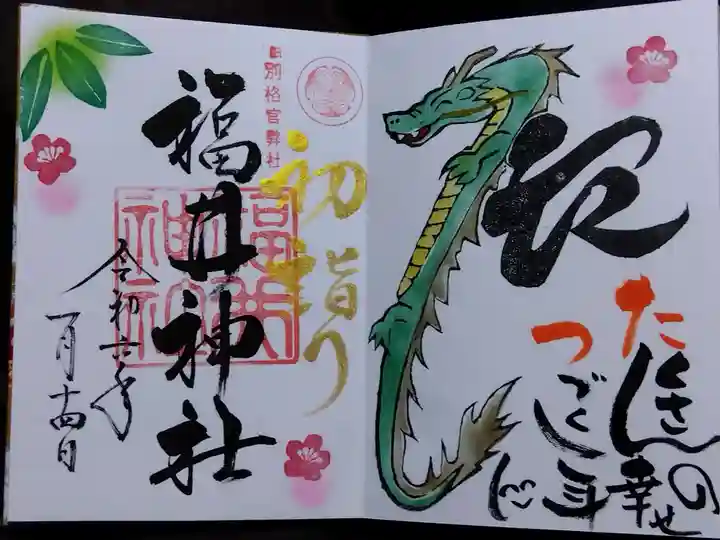 辰
たくさんの幸せ
つづく年に
旧別格官幣社
初詣り
福井神社
令和六年
一月十四日